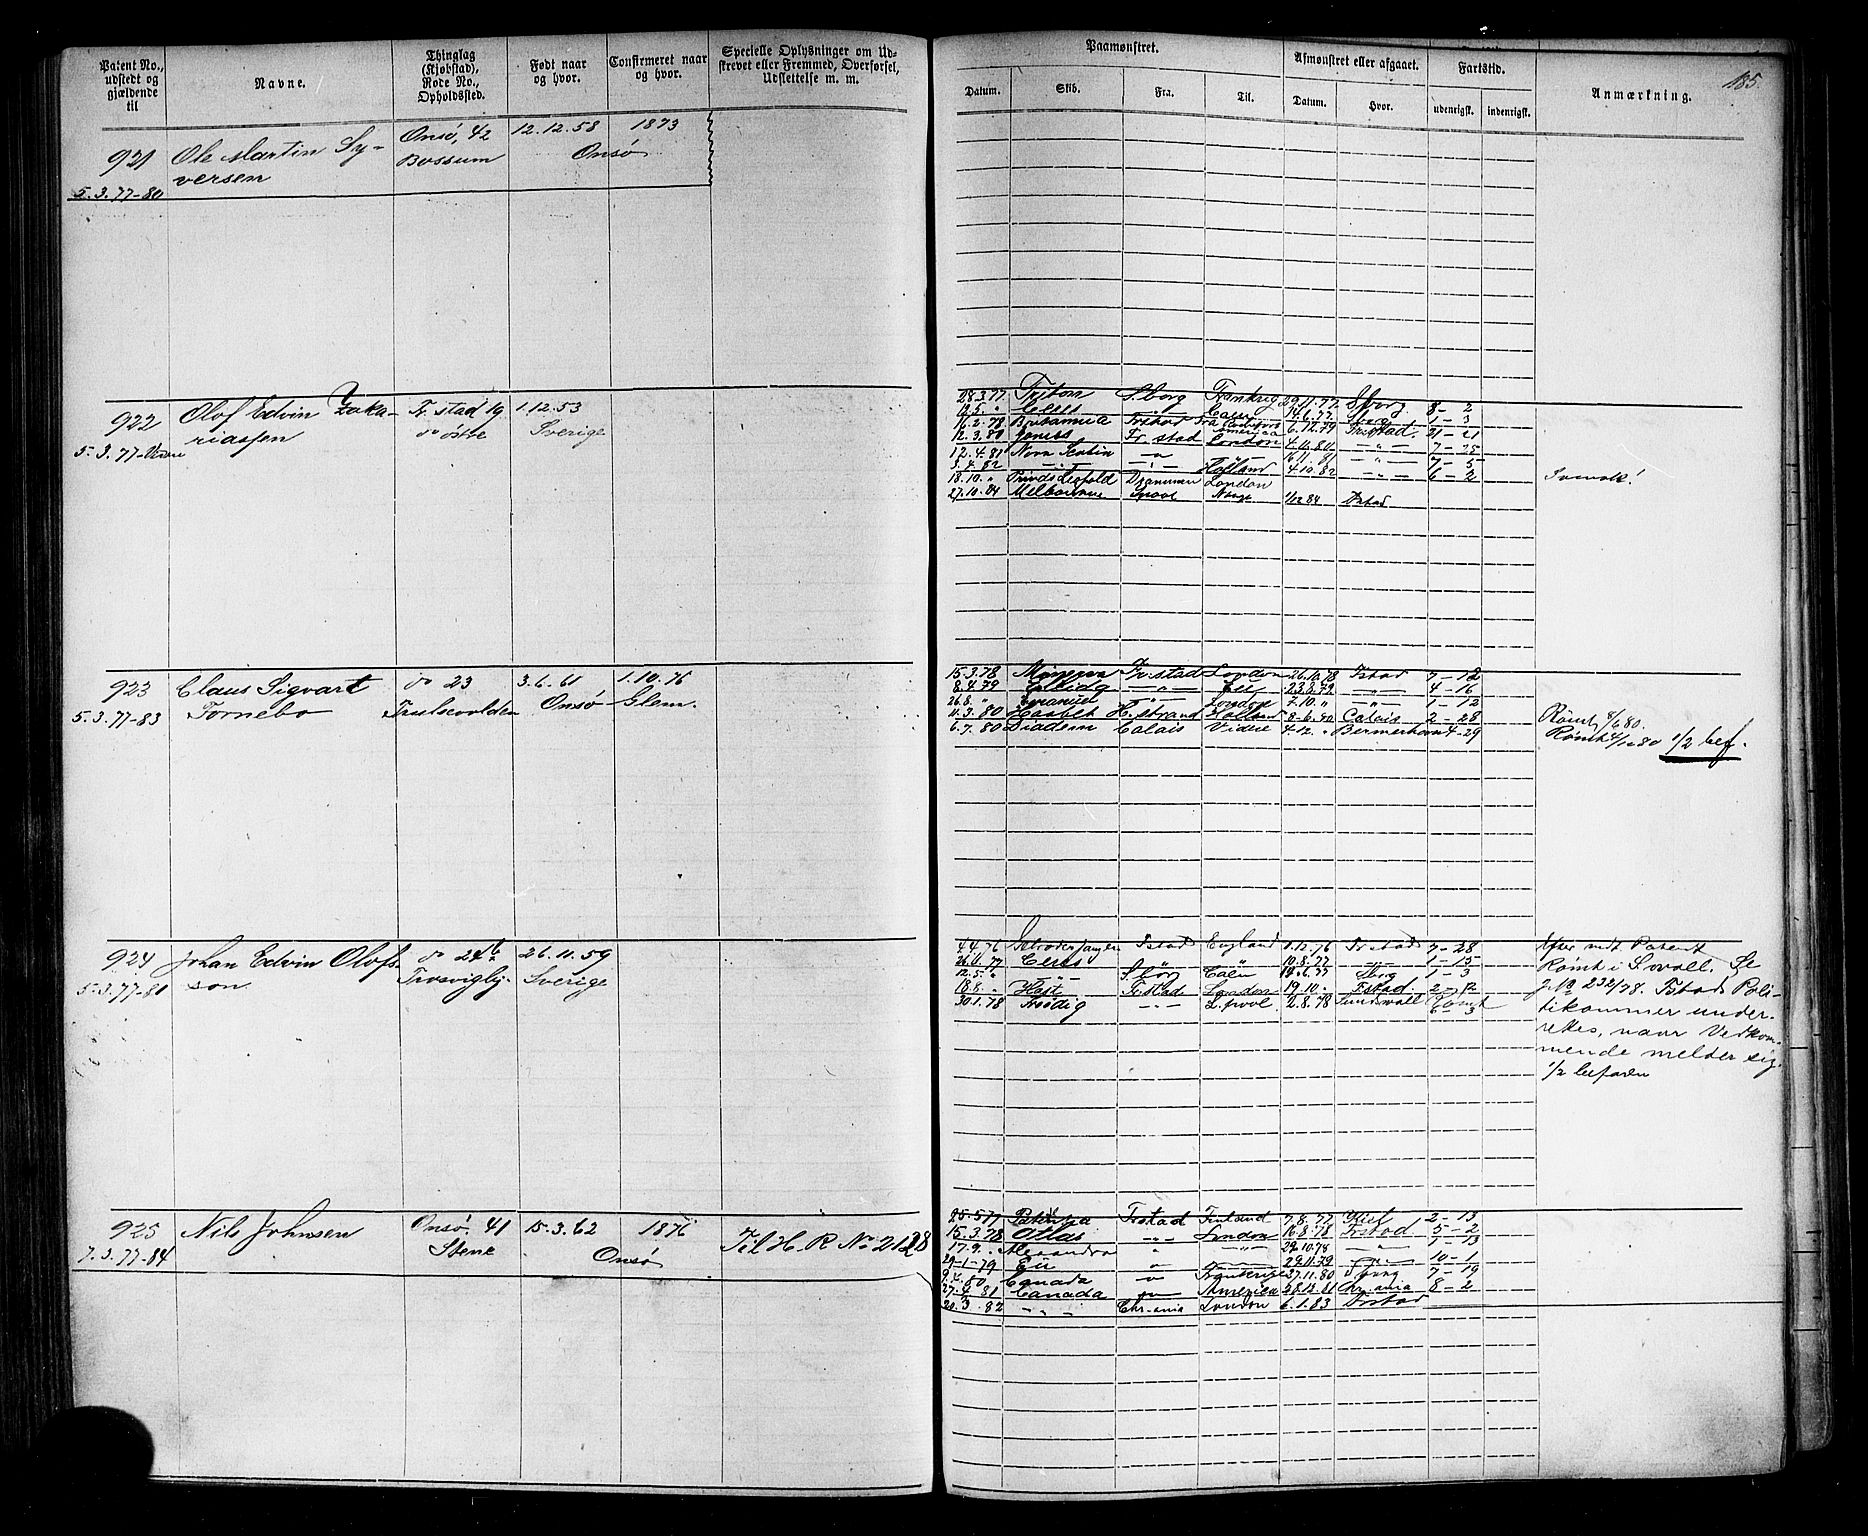 185.
Patent No., udstedt og gjældende til
Navne.
Thinglag (Kjøbstad), Rode No., Opholdssted.
Født naar og hvor.
Confirmeret naar og hvor.
Specielle Oplysninger om Udskrevet eller Fremmed, Overførsel, Udslettelse m. m.
Paamønstret.
Afmønstret eller afgaaet.
Fartstid.
Anmærkning.
Datum. Skib. Fra. Til. Datum. Hvor. udenrigsk. indenrigsk.
921 Ole Martin Sy- Onsø, 42 12.12.58 1873
versen Bossum Onsø
5.3.77-80
922 Olof Edvin Zaka- Fr.stad 19 1.12.53
riassen do østre Sverige
5.3.77-
28.3.77 Triton S.borg Frankrig 29.11.77 S.borg 8-2
12.5. " Ceres 14.6.77 1-3
16.2.78 Britannia America 6.12.79 Fr.stad. 21-21
12.3.80 Fr.stad London 4.11.80 -"- 7-25
12.4.81 Nova Scotia -"- 6.11.81 -"- 7-5
3.4.82 -"- -"- Holland 4.10.82 -"- 6-2
18.10. " Drammen London
27.10.84 Melbourne Norge 1/12 84 Frstad
Svensk!
923 Claus Sigvart do 23 3.6.61 1.10.76
Tornebo Trulsevolden Onsø Glem.
5.3.77-83
15.3.78 Fr.stad London 26.10.78 Fstad 7-12
8.4.79 -"- 23.8.79 -"- 4-16
26.8. " -"- London 7.10. " -"- 1-12
11.3.80 Haabet H.strand Holland 8.6.80 Calais 2-28
6.7.80 Diadem Calais Videre 4.12. " Bermerhavn 4-29
Rømt 8/6 80.
Rømt 4/12 80 1/2 bef.
924 Johan Edvin Olofs- do 24b 26.11.59
son Trosviglj. Sverige
5.3.77-81
4.4.76 Fstad England 1.12.76 Fr.stad 7-28
26.6.77 Ceres " " 10.8.77 -"- 1-15
12.5. " " S.borg Calen 14.6.77 Sborg 1-3
18.8. " Fr.stad London 19.10. " Fstad. 2-
30.1.78 -"- L.pool 2.8.78 Sundsvall Rømt
6-3
Efter mdt. Patent
Rømt i S.vall. Se
J.No 232/78. Fstads Poli-
tikammer under-
rettes, naar Vedkom-
mende melder sig.
1/2 befaren
925 Nils Johnsen Onsø. 41 15.3.62 1876 Til H. R No 2128
7.3.77-84 Stene Onsø
25.5.77 Frstad Finland 7.8.77 Kiel 2-13
15.3.78 Atlas -"- London 16.8.78 Frstad 5-2
17.9. " Alexandra " -"- 29.10.78 -"- 1-13
29-1-79 " -"- 29.11.79 -"- 10-1
9.4.80 Canada " Frankrige 27.11.80 7-19
27.4.81 Canada America 28.12.81 Chr.ania 8-2
20.3.82 -"- Chr.ania London 6.1.83 Frstad